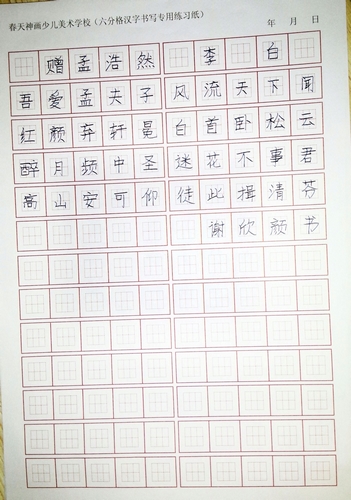 春天神画少儿美术学校(六分格汉字书写专用练习纸) 年 月 日
赠孟浩然 李 白
吾爱孟夫子 风流天下闻
红颜弃轩冕 白首卧松云
醉月频中圣 迷花不事君
高山安可仰 徒此揖清芬
谢欣颜书